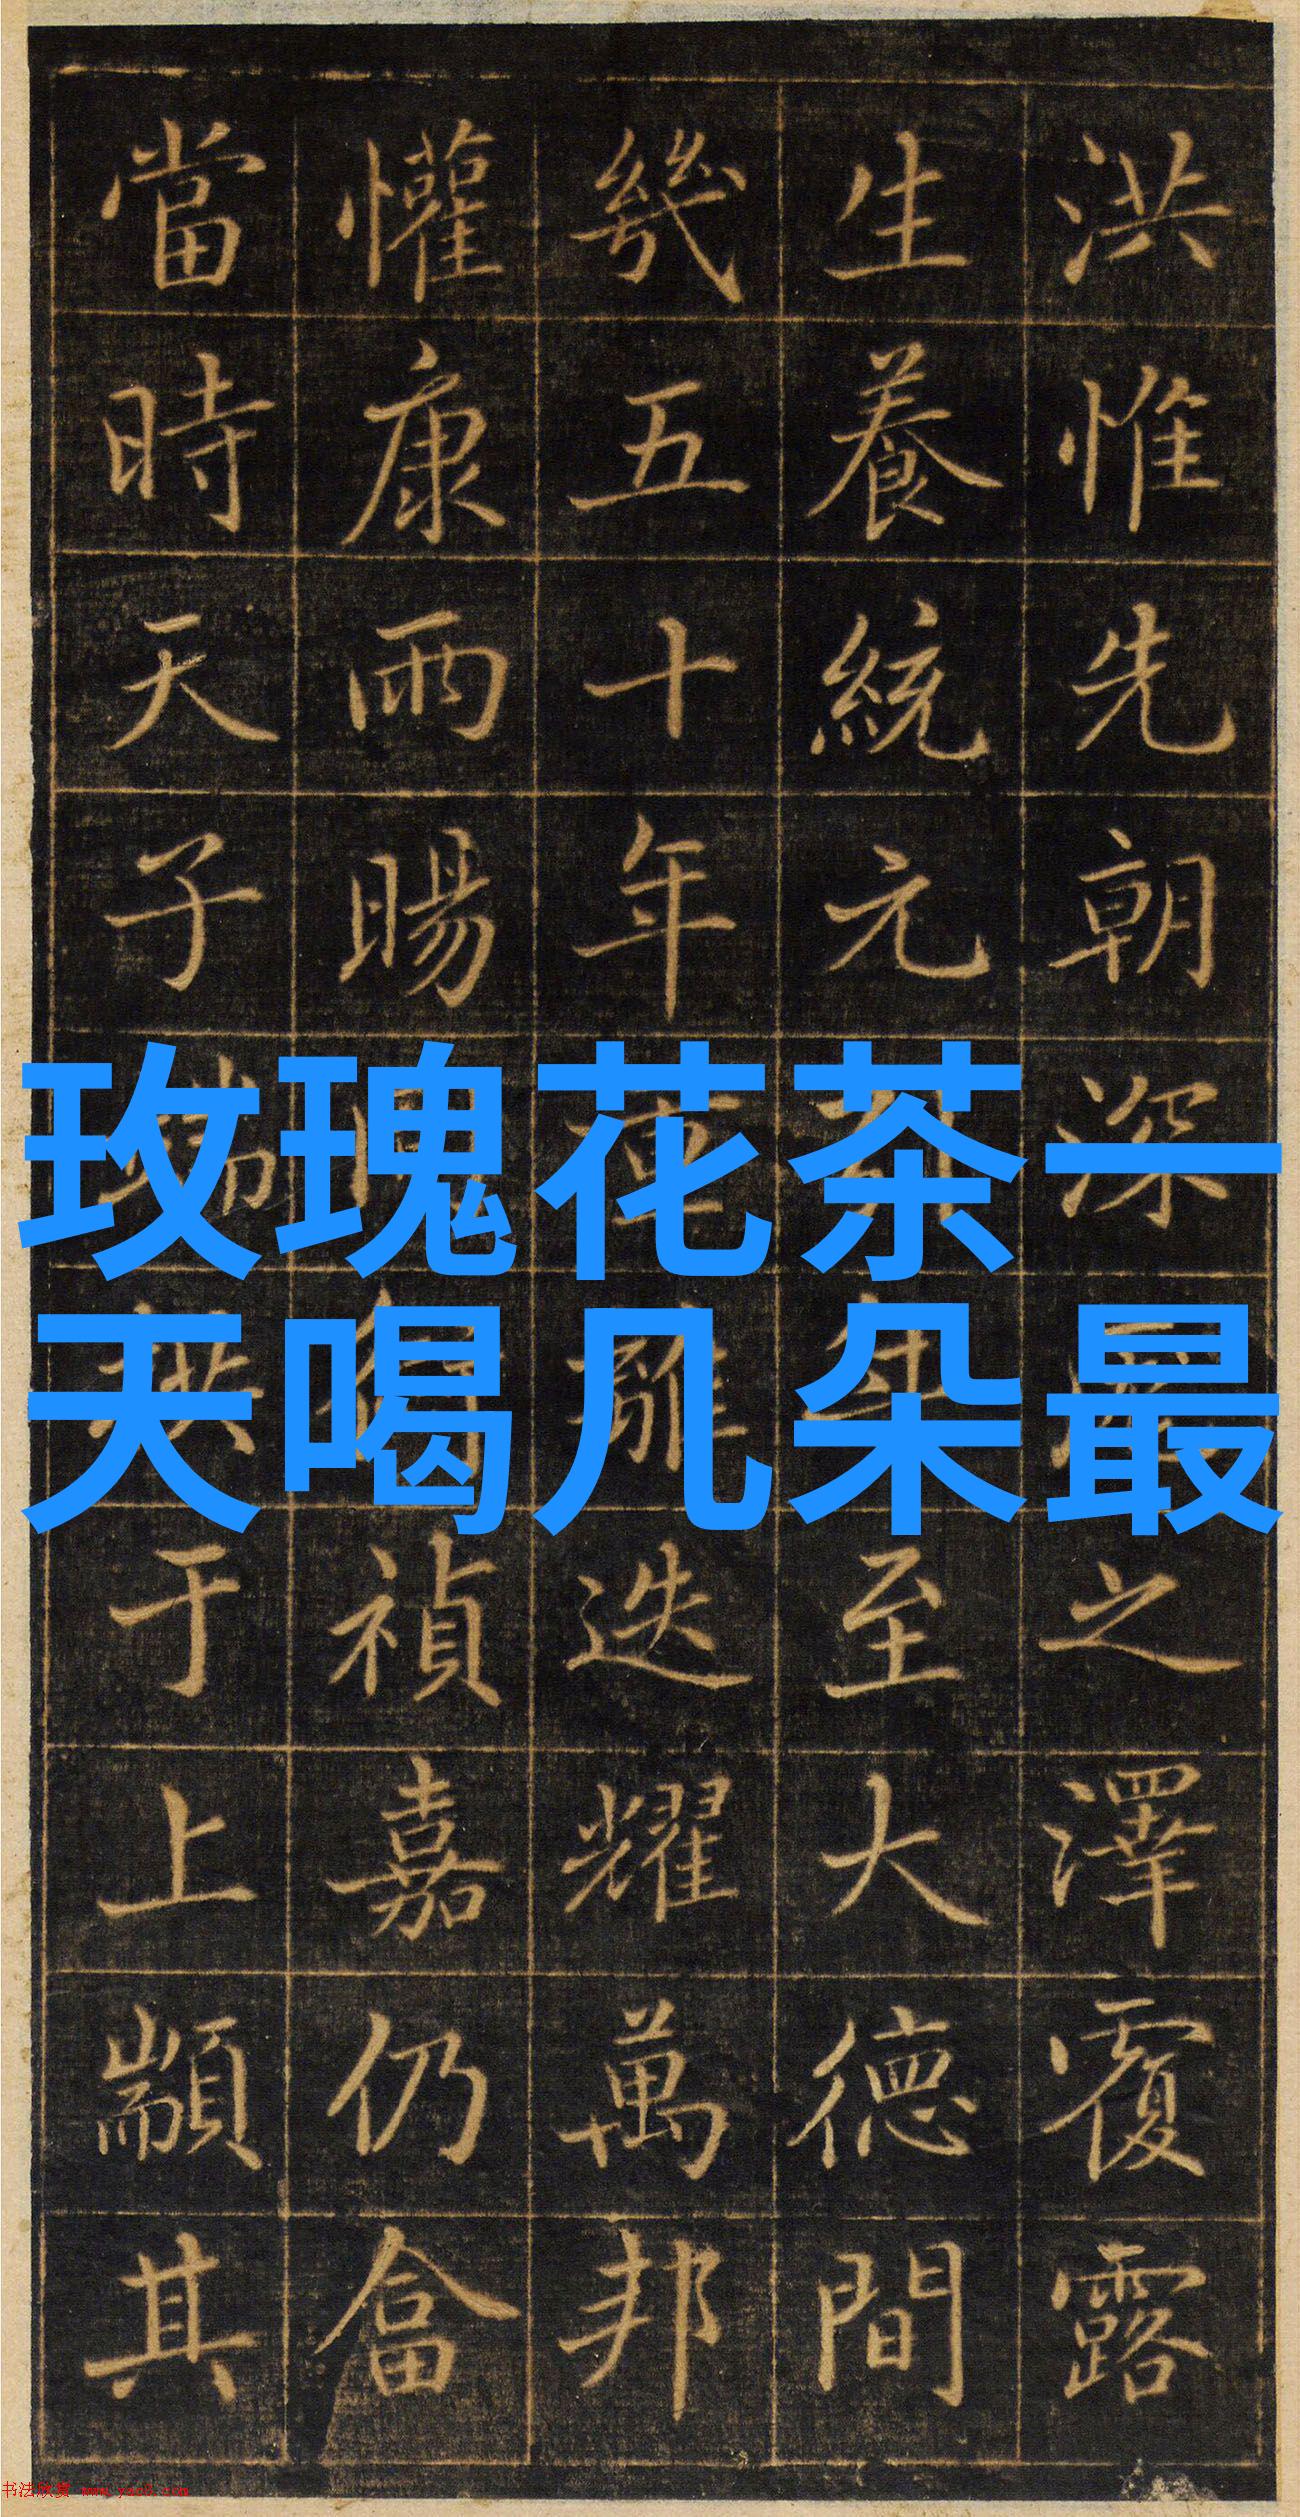 洪惟先朝深之澤覆露
生養統元至大德間
幾五十年重離迭耀萬邦
懽康雨暘時禎嘉仍畲
當時天子端拱于上顓其
玫瑰花茶一
天喝几朵最
书法欣赏 www.yac8.com